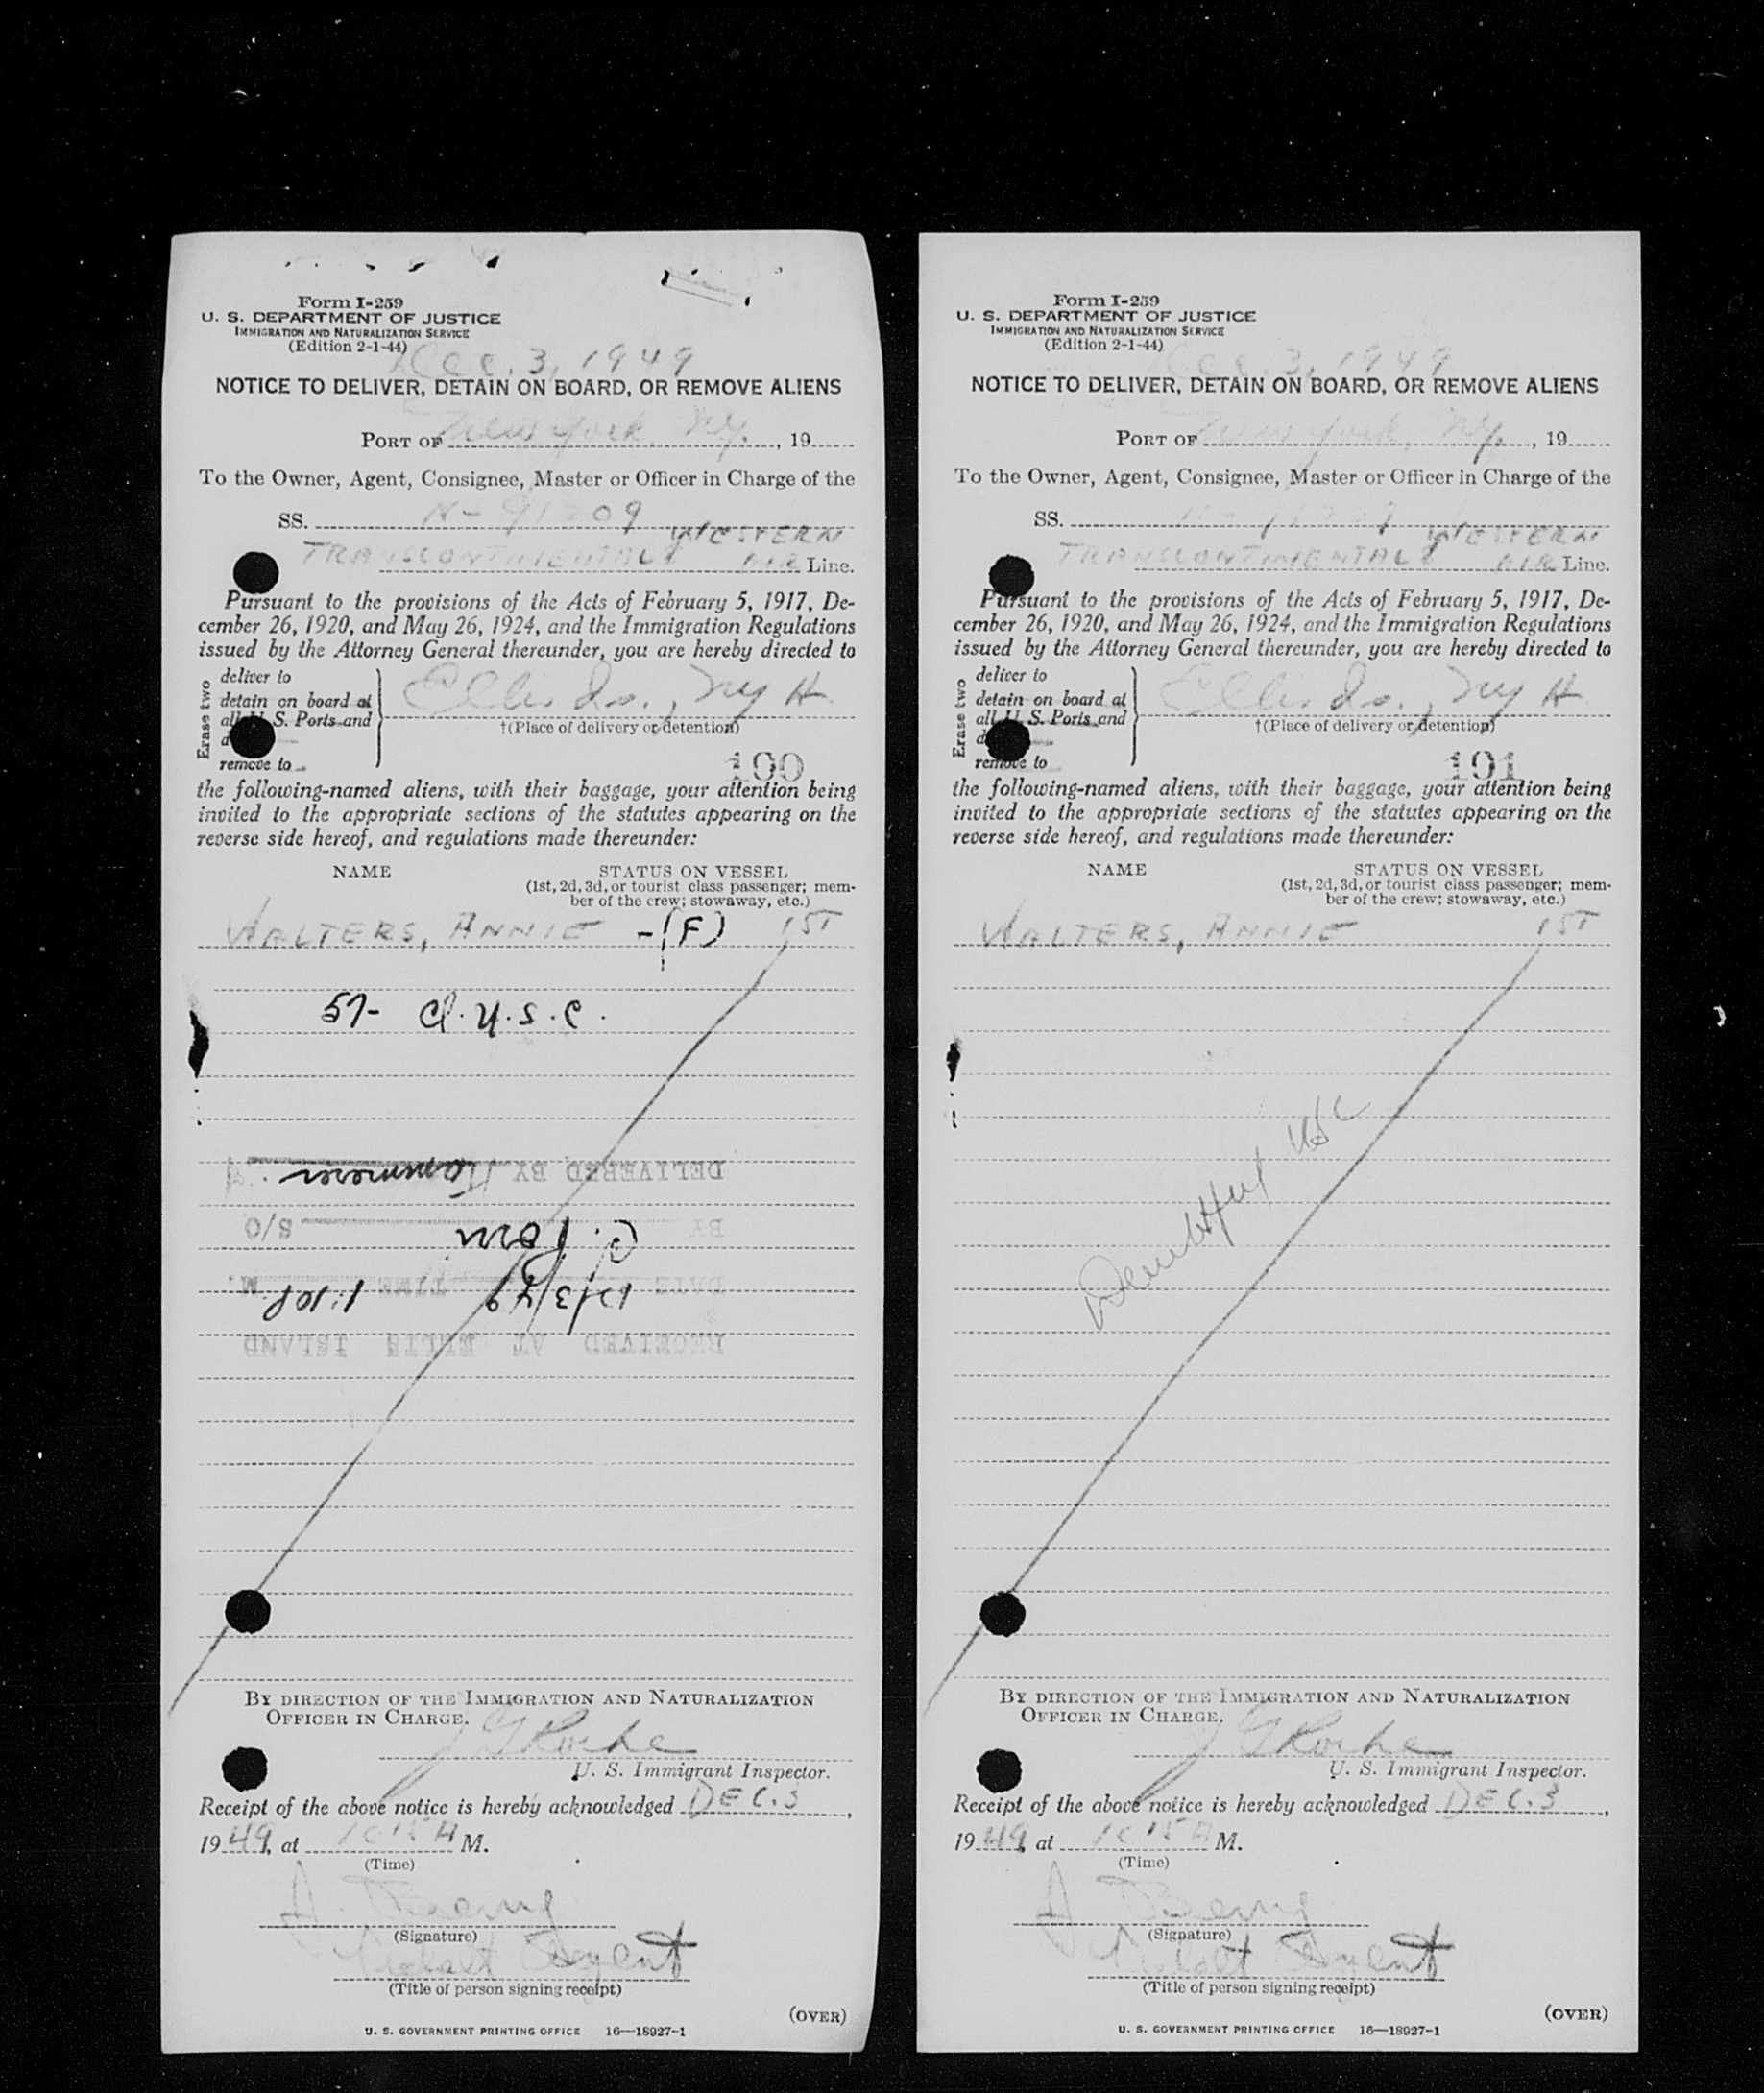 Form I-259
U. S. DEPARTMENT OF JUSTICE
IMMIGRATION AND NATURALIZATION SERVICE
(Edition 2-1-44)
Dec. 3, 1949
NOTICE TO DELIVER, DETAIN ON BOARD, OR REMOVE ALIENS
PORT OF New York, NY. , 19
To the Owner, Agent, Consignee, Master or Officer in Charge of the
SS. N-91209
WESTERN
TRANSCONTINENTAL & AIR Line.
Pursuant to the provisions of the Acts of February 5, 1917, De-
cember 26, 1920, and May 26, 1924, and the Immigration Regulations
issued by the Attorney General thereunder, you are hereby directed to
Erase two
deliver to
detain on board at
all U. S. Ports and
remove to
Ellis Is., NY H
†(Place of delivery or detention)
100
the following-named aliens, with their baggage, your attention being
invited to the appropriate sections of the statutes appearing on the
reverse side hereof, and regulations made thereunder:
NAME STATUS ON VESSEL
(1st, 2d, 3d, or tourist class passenger; mem-
ber of the crew; stowaway, etc.)
WALTERS, ANNIE -(F) 1ST
57- Cl. U.S.C.
DELIVERED BY
BY S/O
DATE 12/3/49 TIME 1:10 P M.
RECEIVED AT ELLIS ISLAND
BY DIRECTION OF THE IMMIGRATION AND NATURALIZATION
OFFICER IN CHARGE.
J G Roche
U. S. Immigrant Inspector.
Receipt of the above notice is hereby acknowledged DEC. 3,
1949, at 1015 A M.
(Time)
A.
(Signature)
Agent
(Title of person signing receipt)
(OVER)
U. S. GOVERNMENT PRINTING OFFICE 16—18927-1
Form I-259
U. S. DEPARTMENT OF JUSTICE
IMMIGRATION AND NATURALIZATION SERVICE
(Edition 2-1-44)
Dec. 3, 1949
NOTICE TO DELIVER, DETAIN ON BOARD, OR REMOVE ALIENS
PORT OF New York, NY. , 19
To the Owner, Agent, Consignee, Master or Officer in Charge of the
SS.
WESTERN
TRANSCONTINENTAL & AIR Line.
Pursuant to the provisions of the Acts of February 5, 1917, De-
cember 26, 1920, and May 26, 1924, and the Immigration Regulations
issued by the Attorney General thereunder, you are hereby directed to
Erase two
deliver to
detain on board at
all U. S. Ports and
remove to
Ellis Is., NY H
†(Place of delivery or detention)
101
the following-named aliens, with their baggage, your attention being
invited to the appropriate sections of the statutes appearing on the
reverse side hereof, and regulations made thereunder:
NAME STATUS ON VESSEL
(1st, 2d, 3d, or tourist class passenger; mem-
ber of the crew; stowaway, etc.)
WALTERS, ANNIE 1ST
Doubtful USC
BY DIRECTION OF THE IMMIGRATION AND NATURALIZATION
OFFICER IN CHARGE.
J G Roche
U. S. Immigrant Inspector.
Receipt of the above notice is hereby acknowledged DEC. 3,
1949, at 1015 A M.
(Time)
A
(Signature)
Agent
(Title of person signing receipt)
(OVER)
U. S. GOVERNMENT PRINTING OFFICE 16—18927-1